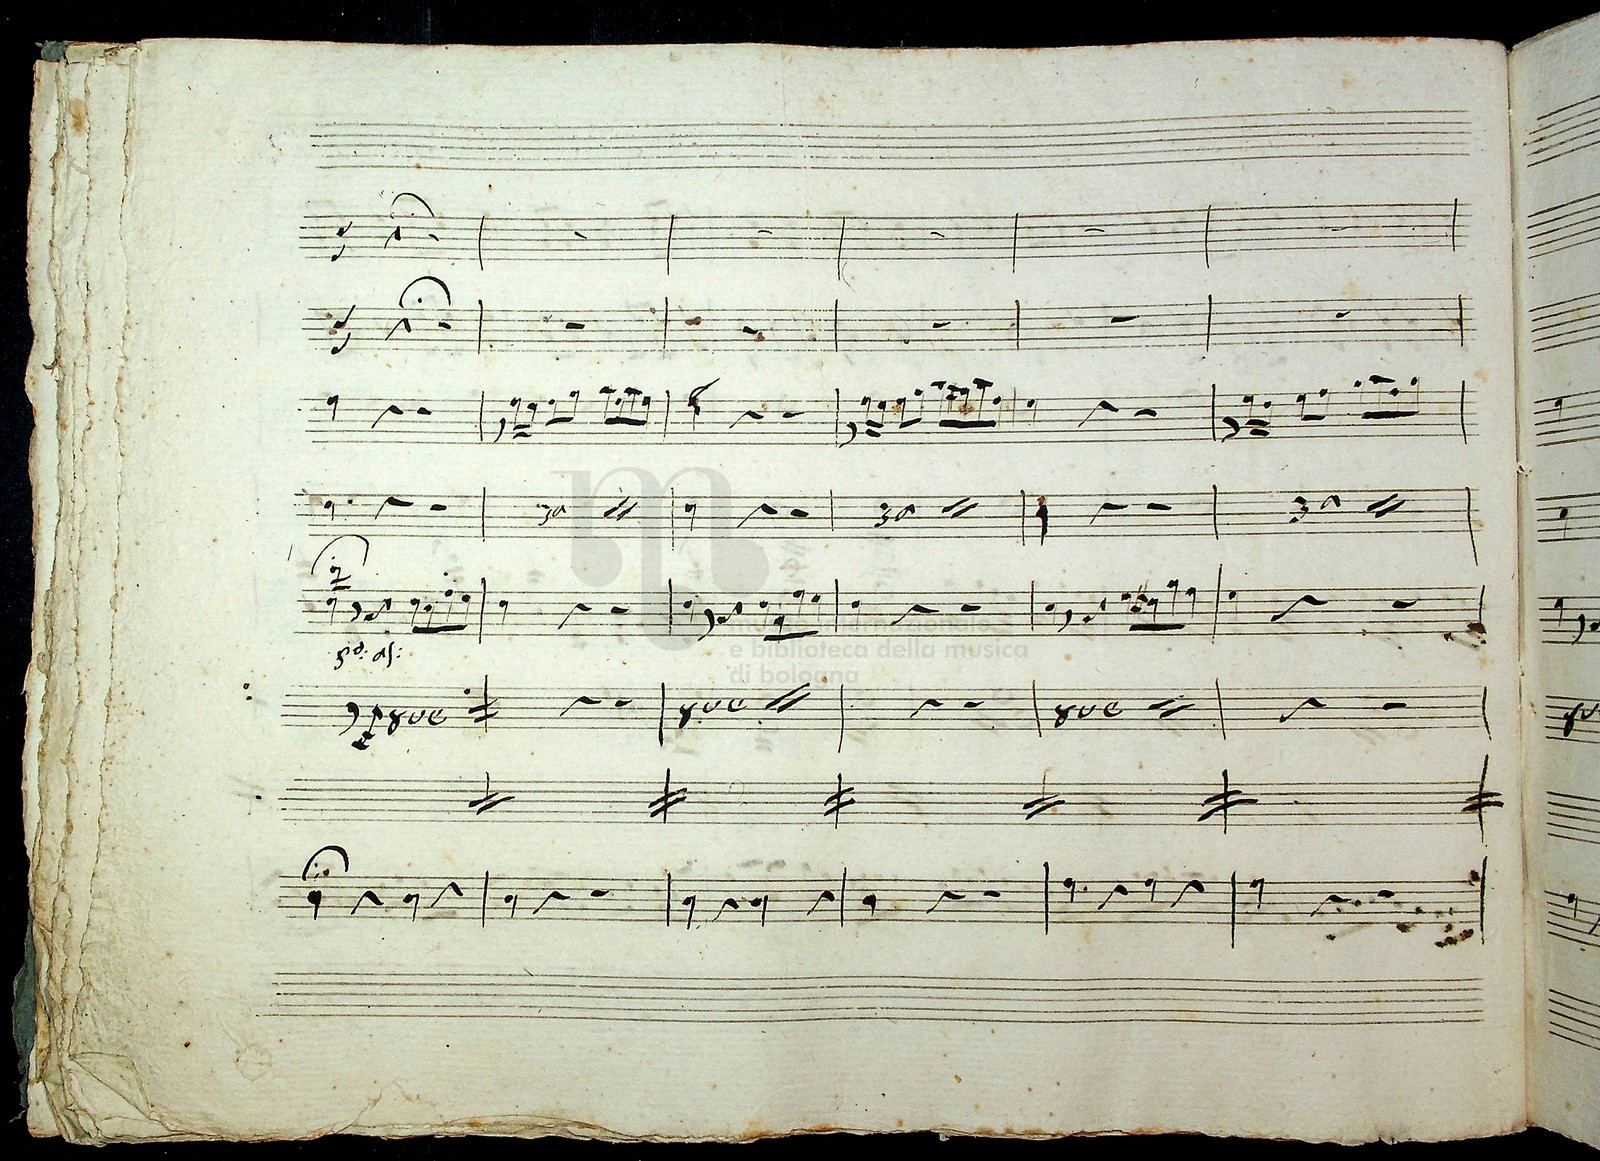 3a 3a 3a
pº. as:
8ve
8ve 8ve
museo internazionale
e biblioteca della musica
di bologna